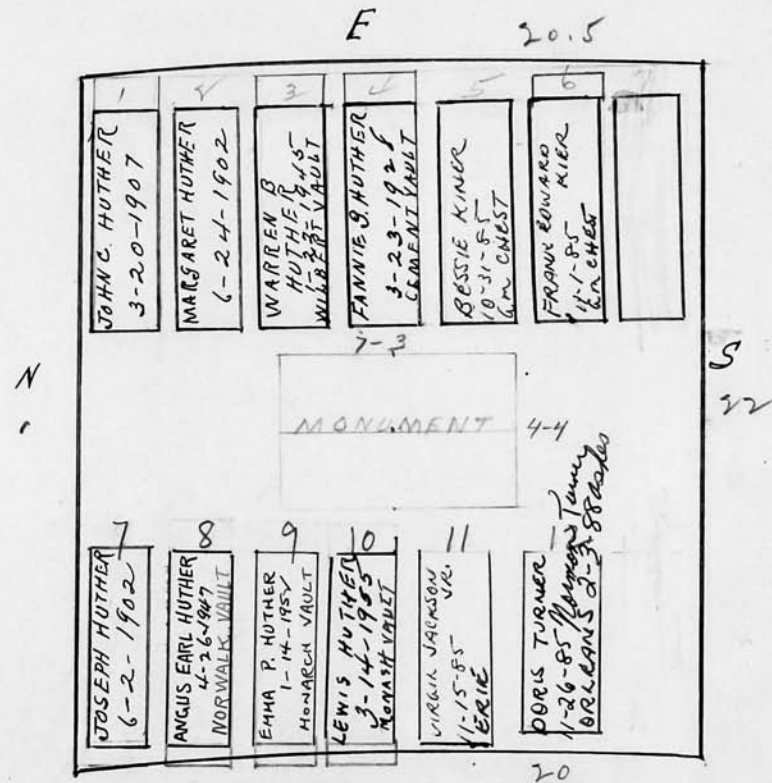 E
20.5
1
2
3
4
5
6
JOHN C. HUTHER
3-20-1907
MARGARET HUTHER
6-24-1902
WARREN B
HUTHER
1-27-1945
WILBERT VAULT
FANNIE I. HUTHER
3-23-1928
CEMENT VAULT
BESSIE KINER
10-31-85
am CHEST
FRANK EDWARD
KIER
11-1-85
am CHEST
N
S
22
7-3
MONUMENT
4-4
7
8
9
10
11
JOSEPH HUTHER
6-2-1902
ANGUS EARL HUTHER
4-26-1947
NORWALK VAULT
EMMA P. HUTHER
1-14-1952
MONARCH VAULT
LEWIS HUTHER
3-14-1955
MONASH VAULT
VIRGIN JACKSON
JR.
11-15-85
ERIE
DORIS TURNER
11-26-85
ORLEANS 2-3-88 ashes
20